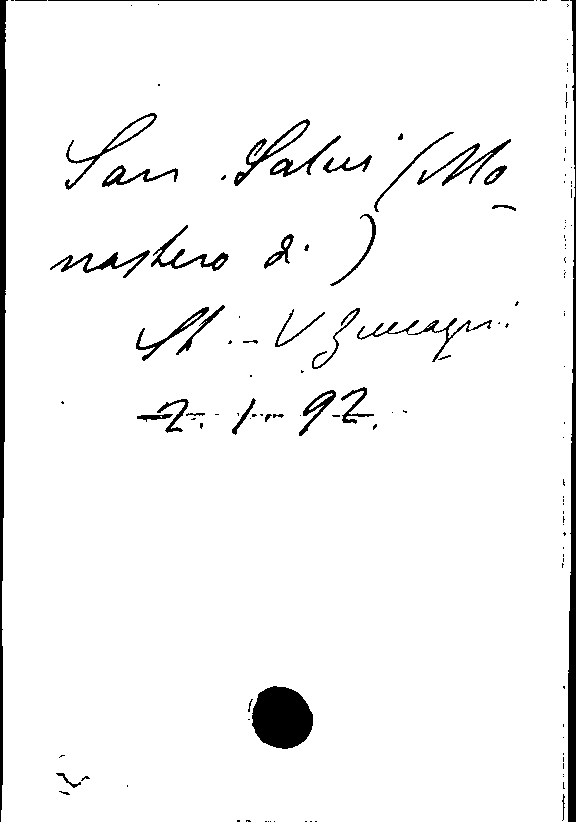 San Salvi (Mo-
nastero di)
St. - V Zuccagni
2. 1. 92.